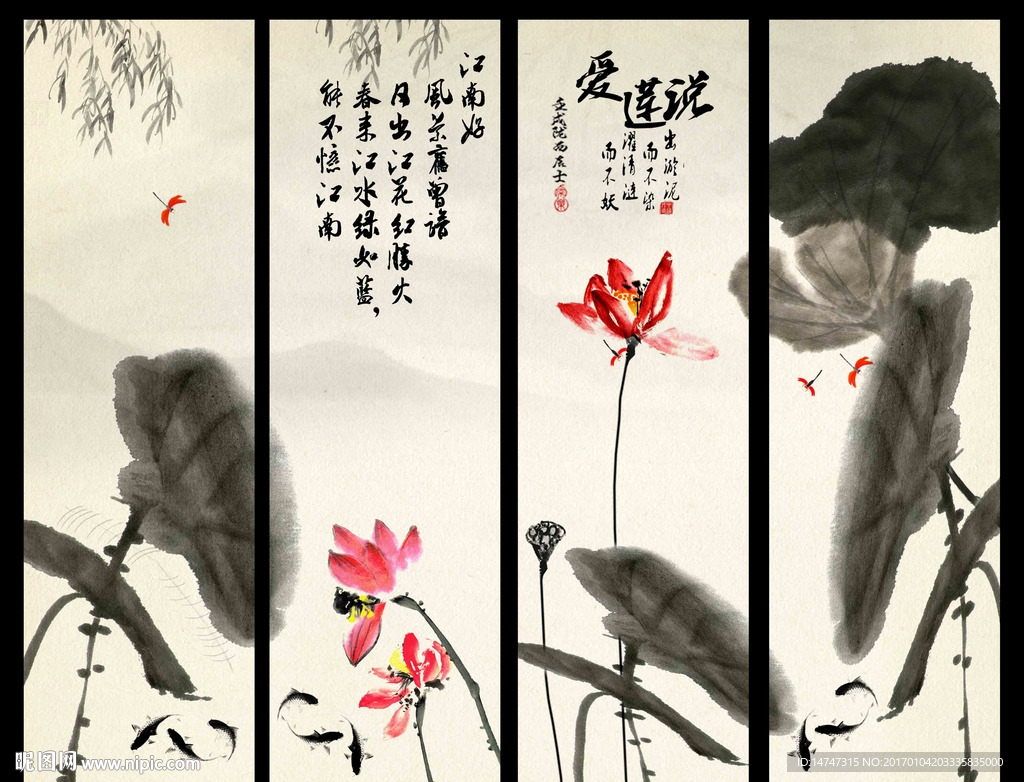 江南好
風景舊曾諳
日出江花红勝火
春来江水绿如藍，
能不憶江南
愛蓮说
出淤泥
而不染
濯清涟
而不妖
西居士
昵图网 www.nipic.com
ID:14747315 NO:20170104203335835000